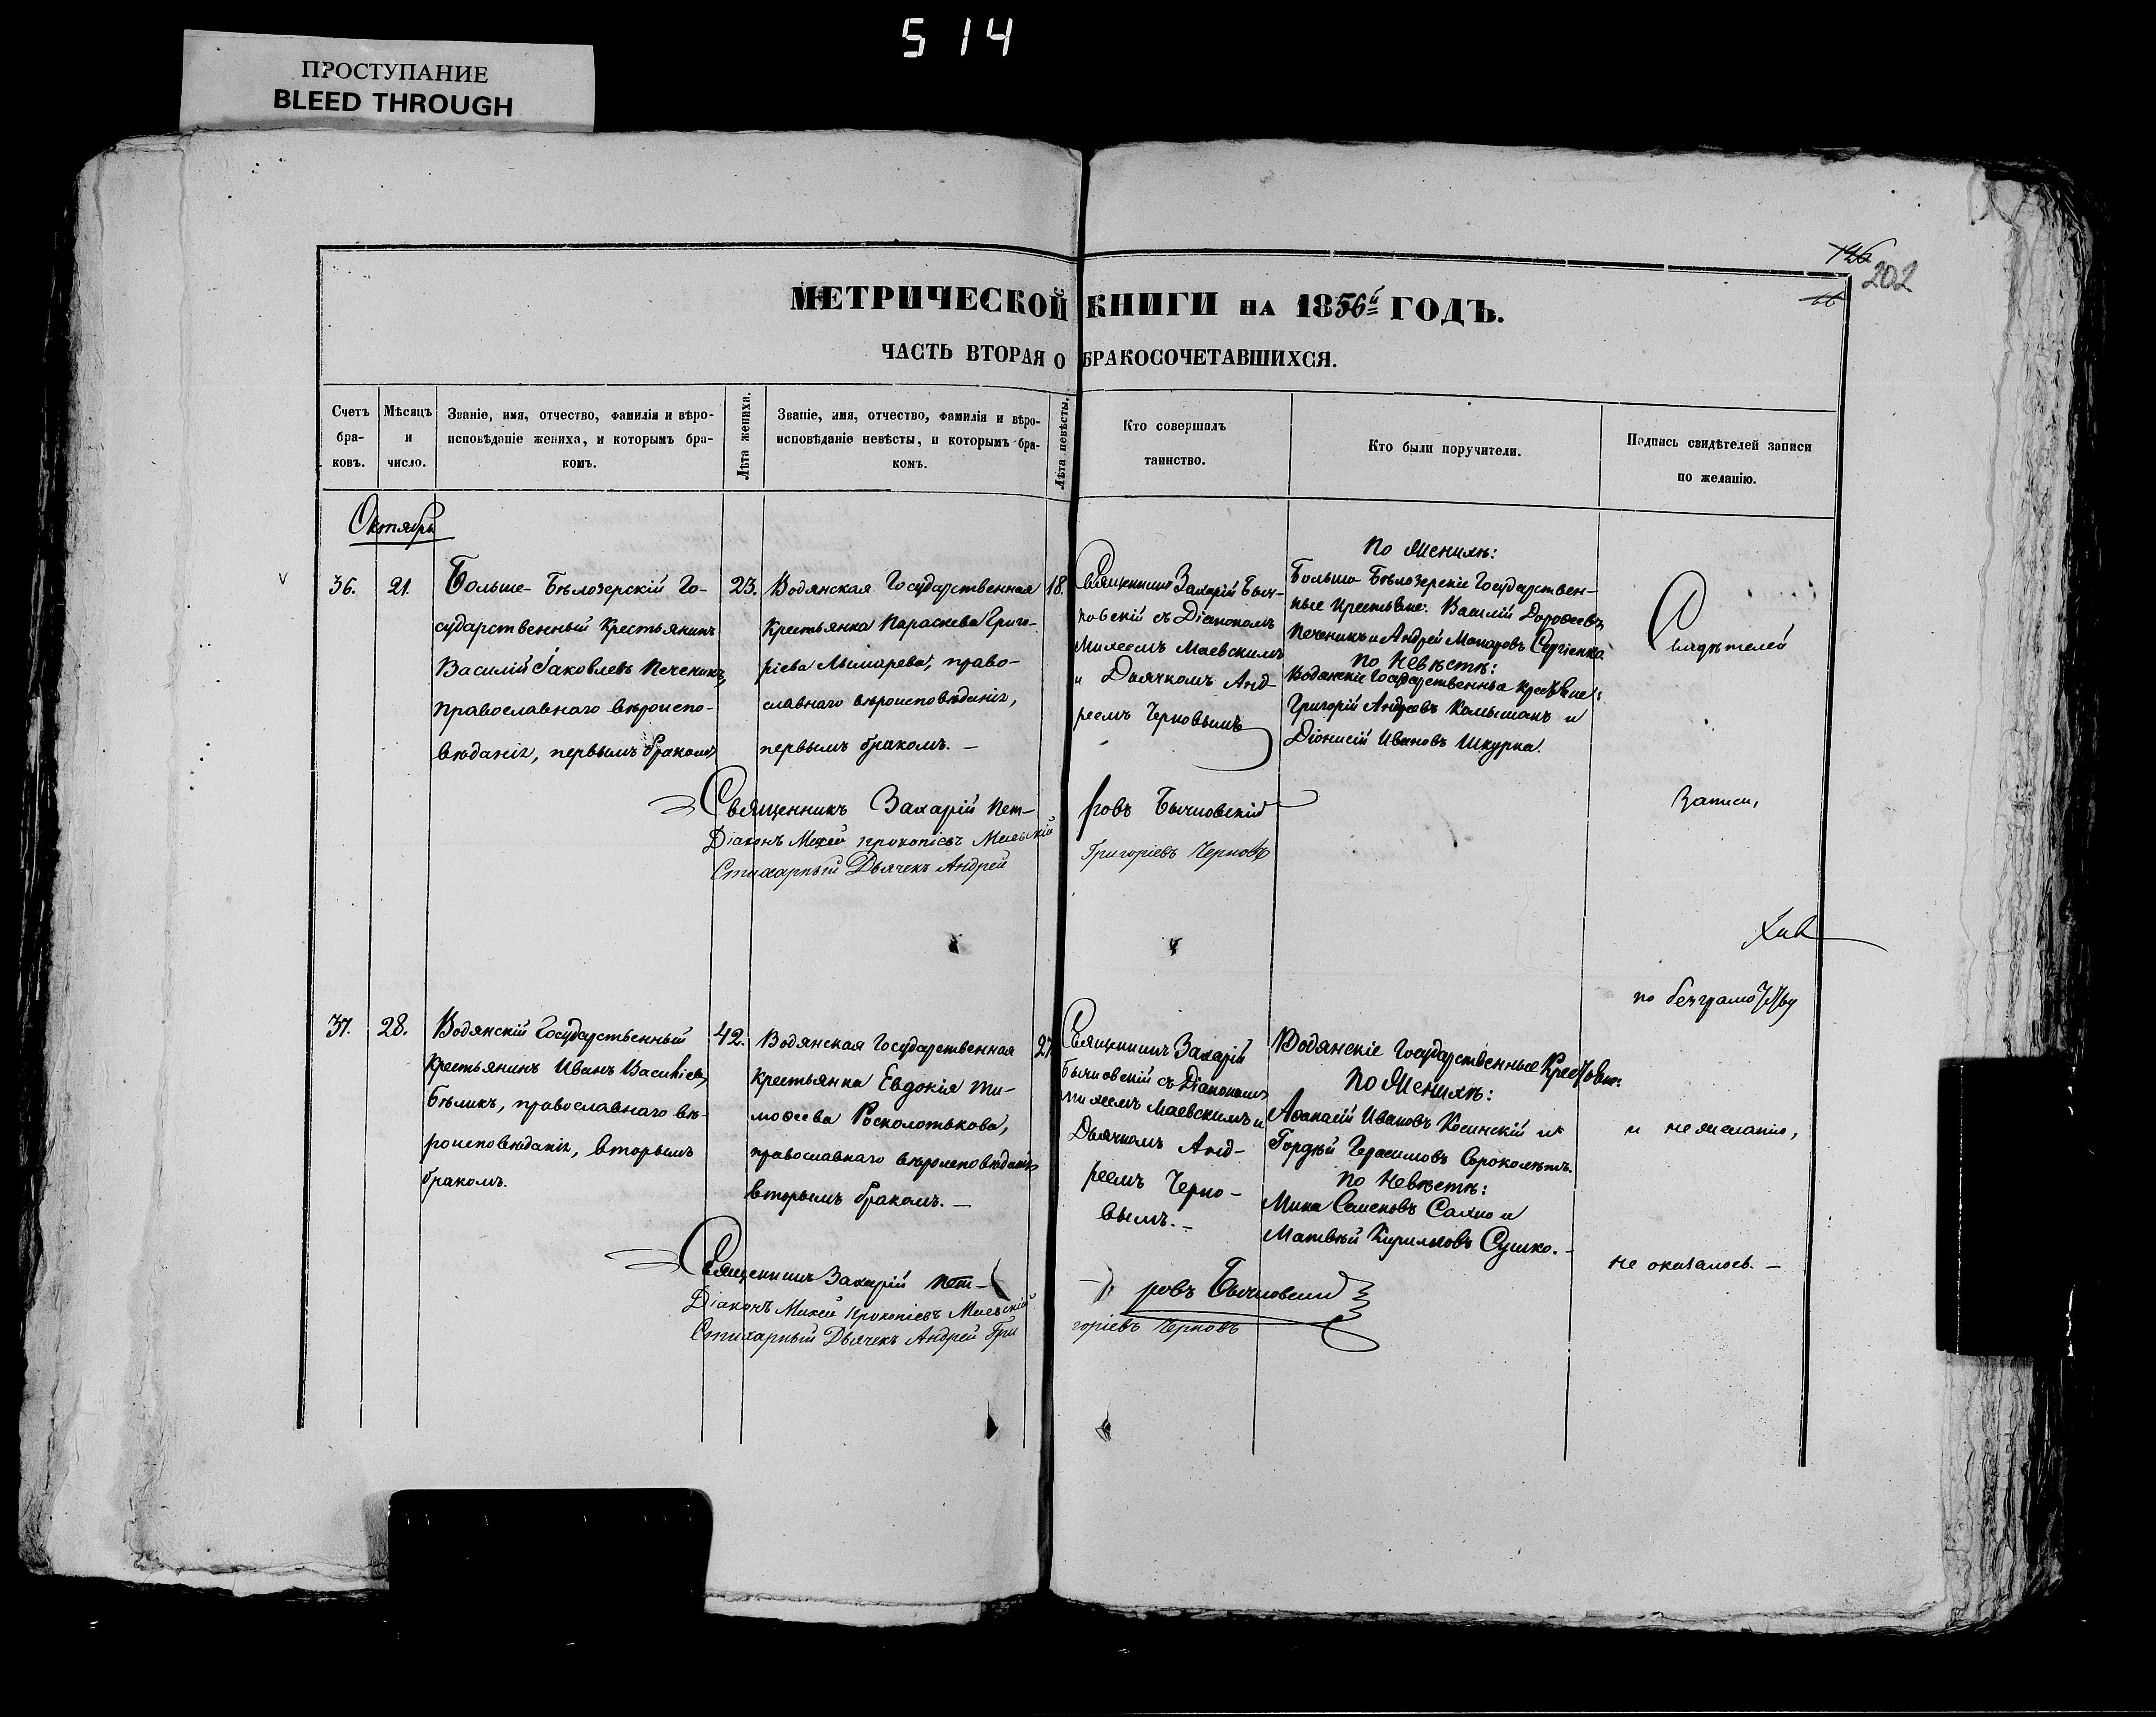 5 14
ПРОСТУПАНИЕ
BLEED THROUGH
126
202
66
МЕТРИЧЕСКОЙ КНИГИ НА 1856й ГОДЪ.
ЧАСТЬ ВТОРАЯ О БРАКОСОЧЕТАВШИХСЯ.
Счетъ бра-
ковъ.
Мѣсяцъ
и
число.
Званіе, имя, отчество, фамилія и вѣро-
исповѣданіе жениха, и которымъ бра-
комъ.
Лѣта жениха.
Званіе, имя, отчество, фамилія и вѣро-
исповѣданіе невѣсты, и которымъ бра-
комъ.
Лѣта невѣсты.
Кто совершалъ
таинство.
Кто были поручители.
Подпись свидѣтелей записи
по желанію.
Октябрь
36.
21.
Больше-Бѣлозерскій Го-
сударственный Крестьянинъ
Василій Іаковлевъ Печеникъ,
православнаго вѣроиспо-
вѣданія, первымъ бракомъ
23.
Водянская Государственная
Крестьянка Параскева Григо-
ріева Лымарева, право-
славнаго вѣроисповѣданія,
первымъ бракомъ. –
18.
Священникъ Захарій Быч-
ковскій съ Діакономъ
Михеемъ Маевскимъ
и Дьячкомъ Анд-
реемъ Черновымъ
По Женихѣ:
Больше-Бѣлозерскіе Государствен-
ные крестьяне: Василій Дорофеевъ
Печеникъ и Андрей Макаровъ Сергіенко.
По Невѣстѣ:
Водянскіе Государственные крестьяне:
Григорій Андреевъ Камышанъ и
Діонисій Ивановъ Шкурка.
Свидѣтелей
Священникъ Захарій Пет-
ровъ Бычковскій
Діаконъ Михей Прокопіевъ Маевскій
Стихарный Дьячекъ Андрей
Григоріевъ Черновъ
записи,
по безграмотству
37.
28.
Водянскій Государственный
Крестьянинъ Иванъ Васильевъ
Бѣликъ, православнаго вѣ-
роисповѣданія, вторымъ
бракомъ.
42.
Водянская Государственная
крестьянка Евдокія Ти-
мофеева Росколотькова,
православнаго вѣроисповѣданія
вторымъ бракомъ. –
27.
Священникъ Захарій
Бычковскій съ Діакономъ
Михеемъ Маевскимъ и
Дьячкомъ Анд-
реемъ Черно-
вымъ. –
Водянскіе Государственные Крестьяне:
По Женихѣ:
Афанасій Ивановъ Косинскій и
Гордѣй Герасимовъ Сороколѣтъ.
По Невѣстѣ:
Мина Семеновъ Сахно и
Матвѣй Кирилловъ Сушко. –
и не желанію,
не оказалось. –
Священникъ Захарій Пет-
ровъ Бычковскій
Діаконъ Михей Прокопіевъ Маевскій
Стихарный Дьячекъ Андрей Гри
горіевъ Черновъ